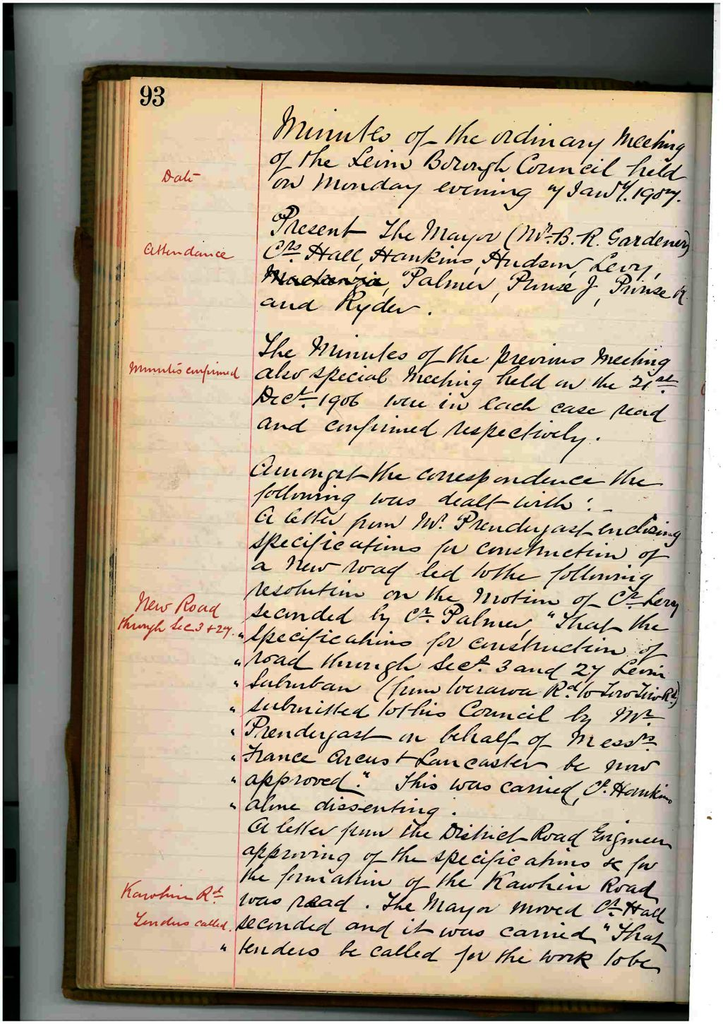 93
Minutes of the ordinary Meeting
of the Levin Borough Council held
Date
on Monday evening 7 Jany. 1907.
Present The Mayor (Mr. B. R. Gardener)
Attendance
Crs Hall, Hankins, Hudson, Levy,
Mackenzie, Palmer, Prouse J, Prouse R
and Ryder.
The Minutes of the previous Meeting
Minutes confirmed
also special Meeting held on the 21st
Decr. 1906 were in each case read
and confirmed respectively.
Amongst the correspondence the
following was dealt with:-
A letter from Mr. Prendergast enclosing
specifications for construction of
a New road led to the following
resolution on the Motion of Cr. Levy
New Road
seconded by Cr. Palmer, "That the
through Sec. 3 & 27.
" specifications for construction of
" road through Sects. 3 and 27 Levin
" Suburban (from Weraroa Rd. to Tiro Tiro Rd.)
" submitted to this Council by Mr.
" Prendergast on behalf of Messrs.
" France Arcus & Lancaster be now
" approved." This was carried, Cr. Hankins
" alone dissenting.
A letter from the District Road Engineer
approving of the specifications &c for
the formation of the Kawhiu Road
Kawhiu Rd.
was read. The Mayor moved Cr. Hall
Tenders called.
seconded and it was carried, "That
" tenders be called for the work to be